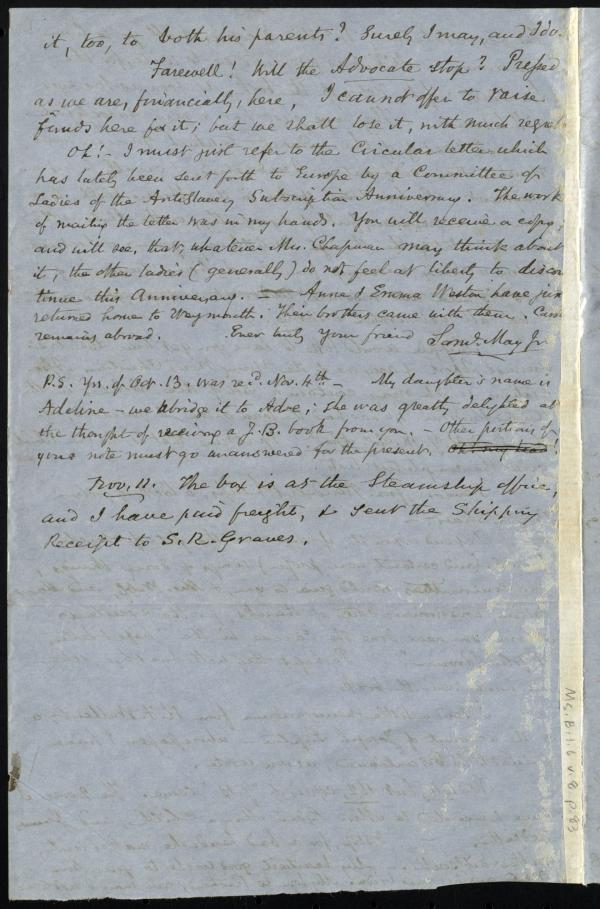 it, too, to both his parents? Surely I may, and I do.
Farewell! Will the Advocate stop? Pressed
as we are, financially, here, I cannot offer to raise
funds here for it; but we shall lose it, with much regret.
Oh! - I must just refer to the Circular letter, which
has lately been sent forth to Europe by a Committee of
Ladies of the AntiSlavery Subscription Anniversary. The work
of mailing the letter was in my hands. You will receive a copy;
and will see, that, whatever Mrs. Chapman may think about
it, the other ladies (generally) do not feel at liberty to discon
tinue this Anniversary. — Anne & Emma Weston have just
returned home to Weymouth. Their brothers came with them. Caro
remains abroad. Ever truly your friend Saml. May Jr.
P.S. Yrs. of Oct. 13. was recd. Nov. 4th - My daughter's name is
Adeline - we abridge it to Addie; she was greatly delighted at
the thought of receiving a J.B. book from you. - Other portions of
your note must go unanswered for the present.
Nov. 11. The box is at the Steamship office,
and I have paid freight, & sent the Shipping
Receipt to S. R. Graves.
Ms. B.1.6 v.8 p.83